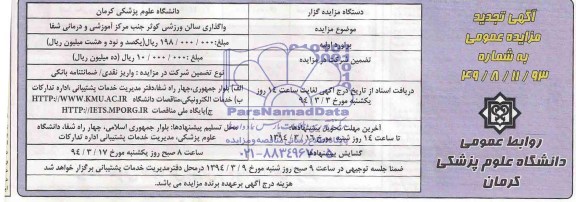 آگهی تجدید
مزایده عمومی
به شماره
۴۹/۸/۱۱/۹۳
روابط عمومی
دانشگاه علوم پزشکی
کرمان
دستگاه مزایده گزار
دانشگاه علوم پزشکی کرمان
موضوع مزایده
واگذاری سالن ورزشی کوثر جنب مرکز آموزشی و درمانی شفا
برآورد اولیه
مبلغ: ۱۹۸/۰۰۰/۰۰۰ ریال(یکصد و نود و هشت میلیون ریال)
تضمین شرکت در مزایده
مبلغ: ۱۰/۰۰۰/۰۰۰ ریال (ده میلیون ریال)
نوع تضمین شرکت در مزایده : واریز نقدی/ ضمانتنامه بانکی
دریافت اسناد از تاریخ درج آگهی لغایت ساعت ۱۴ روز
یکشنبه مورخ ۹۴/۳/۳
الف) بلوار جمهوری،چهار راه شفا،دفتر مدیریت خدمات پشتیبانی ،اداره تدارکات
ب) خدمات الکترونیکی،مناقصات دانشگاه HTTP://WWW.KMU.AC.IR
ج)پایگاه ملی مناقصات HTTP://IETS.MPORG.IR
ParsNamadData
آخرین مهلت تحویل پیشنهادها:
تا ساعت ۱۴ روز شنبه مورخ ۱۳۹۴/۳/۱۶
محل تسلیم پیشنهادها: بلوار جمهوری اسلامی، چهار راه شفا، دانشگاه
علوم پزشکی، مدیریت خدمات پشتیبانی اداره تدارکات
۰۲۱-۸۸۳۴۹۶۷۰-۵
گشایش پیشنهادها
ساعت ۸ صبح روز یکشنبه مورخ ۹۴/۳/۱۷
ضمنا جلسه توجیهی در ساعت ۹ صبح روز شنبه مورخ ۱۳۹۴/۳/۹ درمحل دفترمدیریت خدمات پشتیبانی برگزار خواهد شد
هزینه درج آگهی برعهده برنده مزایده می باشد.